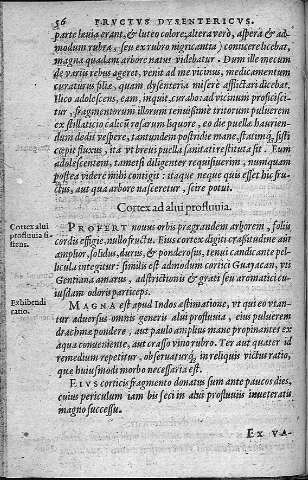 56 FRVCTVS DYSENTERICVS.
parte leuia erant, & luteo colore, altera verò, aspera & ad-
modum rubra, seu ex rubro nigricantia) conucere licebat,
magna quadam arbore natus videbatur. Dum ille mecum
de varijs rebus ageret, venit ad me vicinus, medicamentum
curaturus filiæ, quam dysenteria miserè afflictari dicebat.
Ilico adolescens, eam, inquit, curabo: ad vicinum proficisci
tur, fragmentorum illorum tenuissimè tritorum puluerem
ex stillatitio calicũ rosarum liquore, eo die puellæ haurien-
dum dedit vespere, tantundem postridie mane, statimq́; sisti
cœpit fluxus, ita vt breui puella sanitati restituta sit. Eum
adolescentem, tametsi diligenter requisiuerim, numquam
postea videre mihi contigit: itaque neque quis esset hic fru-
ctus, aut qua arbore nasceretur, scire potui.
Cortex ad alui profluuia.
Cortex alui
profluuia si-
stens.
PROFERT nouus orbis prægrandem arborem, folijs
cordis effigie, nullo fructu. Eius cortex digiti crassitudine aut
amplior, solidus, durus, & ponderosus, tenui candicante pel-
licula integitur: similis est admodum cortici Guayacan, vti
Gentiana amarus, adstrictionis & grati seu aromatici cu-
iusdam odoris particeps.
Exhibendi
ratio.
MAGNA est apud Indos estimatione, vt qui eo vtan-
tur aduersus omnis generis alui profluuia, eius puluerem
drachmæ pondere, aut paulo amplius mane propinantes ex
aqua conueniente, aut crasso vino rubro. Ter aut quater id
remedium repetitur, obseruaturq́; in reliquis victus ratio,
quæ huiusmodi morbo necessaria est.
EIVS corticis fragmento donatus sum ante paucos dies,
cuius periculum iam bis feci in alui profluuijs inueteratis
magno successu.
EX VA-